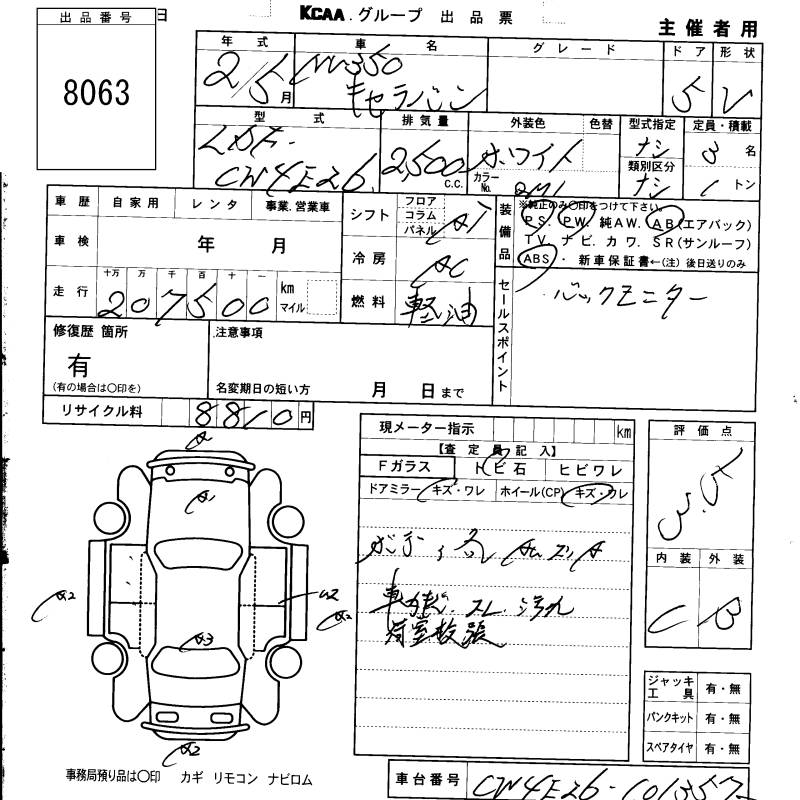 出品番号
日
KCAA.グループ 出品票
主催者用
8063
年式 車名 グレード ドア 形状
2/5月 NV350 キャラバン 5 V
型式 排気量 外装色 色替 型式指定 定員・積載
LDF- CW4E26 2,500 C.C. ホワイト カラーNo. ナシ 3 名
類別区分 ナシ 1 トン
車歴 自家用 レンタ 事業.営業車
シフト フロア コラム パネル AT
装備品 ※純正のみ〇印をつけて下さい。
PS. PW. 純AW. AB(エアバック)
TV. ナビ. カワ. SR(サンルーフ)
ABS・ 新車保証書←(注)後日送りのみ
車検 年 月
冷房 AC
走行 十万 万 千 百 十 一
207500 km マイル
燃料 軽油
セールスポイント バックモニター
修復歴 箇所
有
(有の場合は〇印を)
注意事項
名変期日の短い方 月 日まで
リサイクル料 8810円
現メーター指示 km
【査定員記入】
Fガラス トビ石 ヒビワレ
ドアミラー キズ・ワレ ホイール(CP) キズ・ワレ
評価点
3.5
内装 外装
C B
A
A1
A2
A2
A2
A3
A2
車内 スレ 汚れ
荷室
ジャッキ工具 有・無
パンクキット 有・無
スペアタイヤ 有・無
事務局預り品は〇印 カギ リモコン ナビロム
車台番号 CW4E26-101357